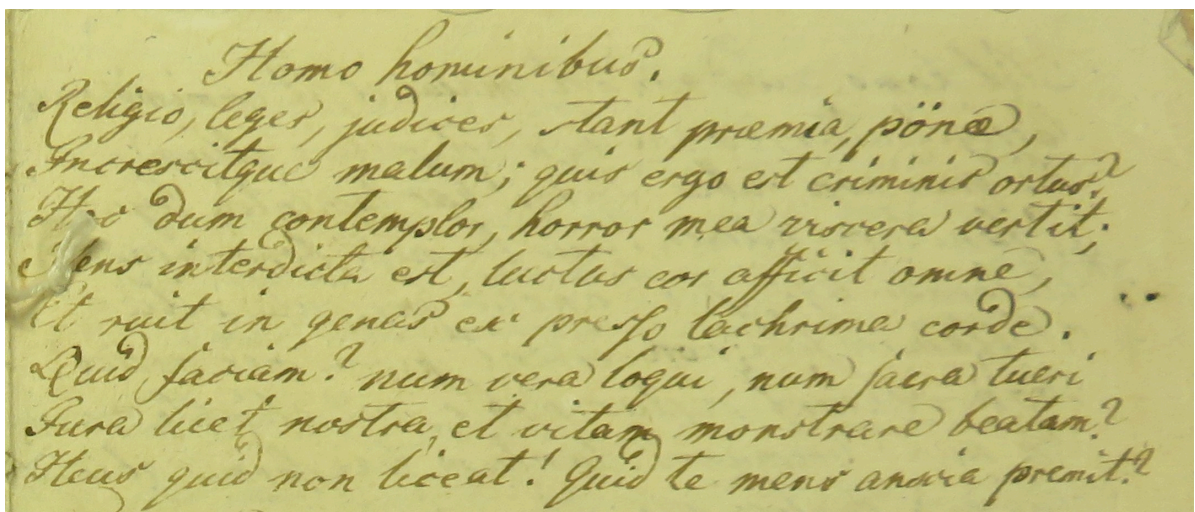 Homo hominibus.
Religio, leges, judices, stant præmia, pönæ,
Increscitque malum; quis ergo est criminis ortus?
Hæc dum contemplor, horror mea viscera vertit;
Mens interdicta est, luctus cor afficit omne,
Et ruit in genas ex presso lachrima corde.
Quid faciam? num vera loqui, num sacra tueri
Jura licet nostra, et vitam monstrare beatam?
Heus quid non liceat! Quid te mens anxia premit?